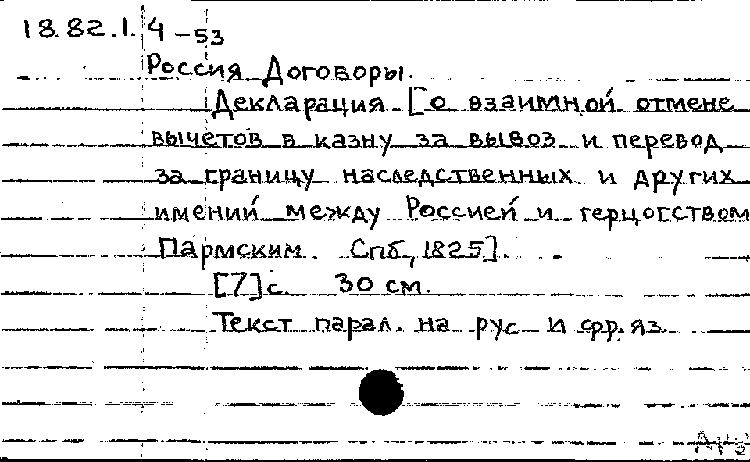 18.82.1.4-53
Россия. Договоры.
Декларация [о взаимной отмене
вычетов в казну за вывоз и перевод
за границу наследственных и других
имений между Россией и герцогством
Пармским. Спб, 1825].
[7] с. 30 см.
Текст парал. на рус и фр. яз.